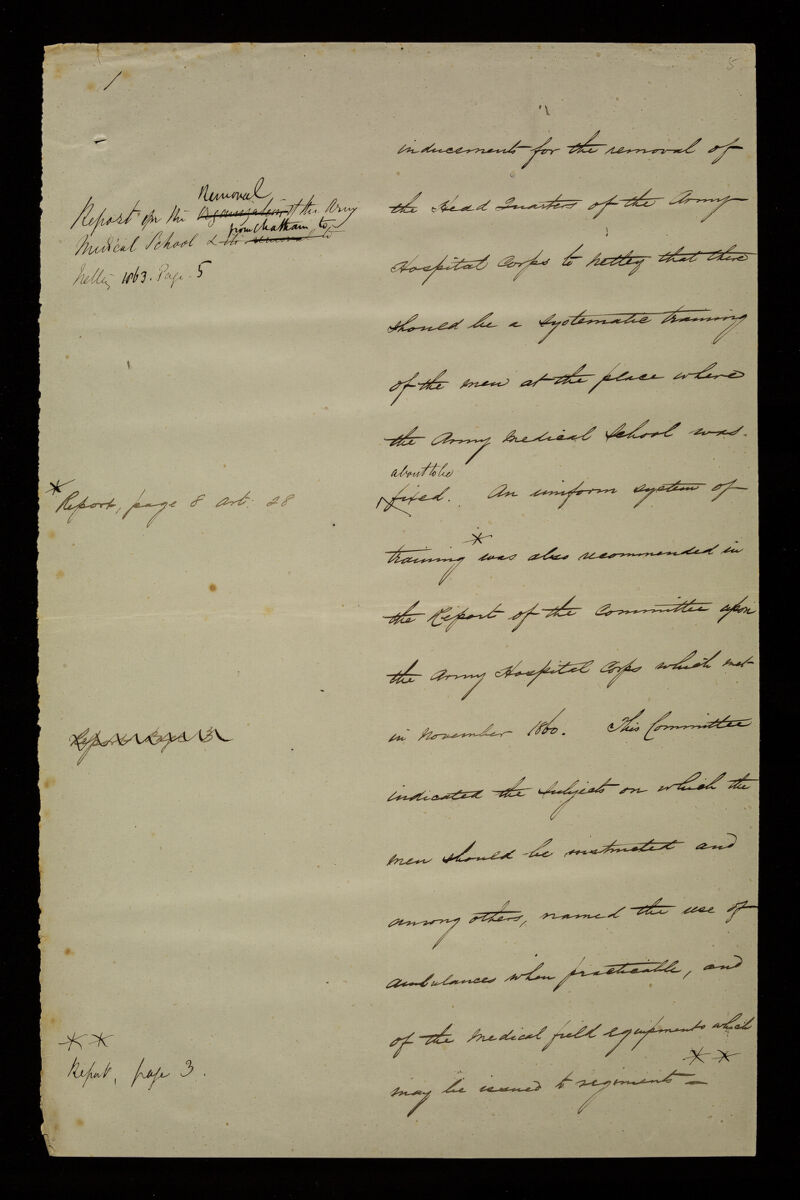 5
inducements for the removal of
the Head Quarters of the Army
Hospital Corps to Netley that there
should be a systematic training
of the men at the place where
the Army Medical School was
about to be
fixed. An uniform system of
training * was also recommended in
the Report of the Committee upon
the Army Hospital Corps which met
in November 1860. This Committee
indicated the subjects on which the
men should be instructed and
among others, named the use of
ambulances when practicable, and
of the medical field equipments which
may be issued to regiments — * *
Removal
Report on the Organization of the Army
from Chatham to
Medical School & its removal to
Netley 1863. Page 5
*
Report, page 8 art. 28
Report page 3
* *
Report, page 3.